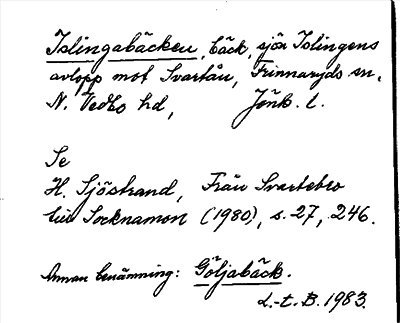 Islingabäcken, bäck, sjön Islingens
avlopp mot Svartån, Frinnaryds sn,
N. Vedbo hd, Jönk. l.
Se
H. Sjöstrand, Från Svartebro
till Socknamon (1980), s. 27, 246.
Annan benämning: Göljabäck.
L.-t. B. 1983.